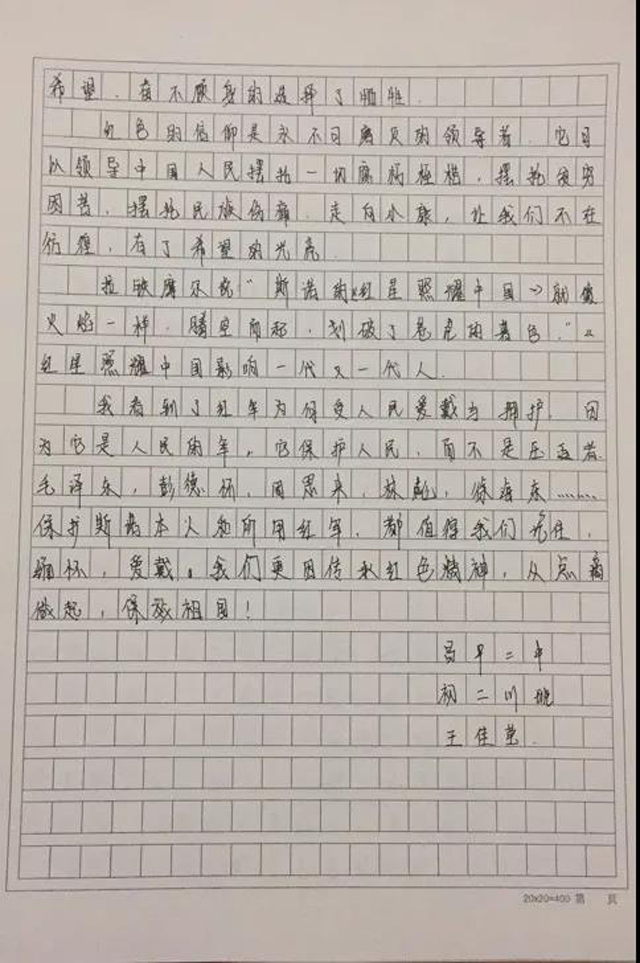 希望，奋不顾身的选择了牺牲。
红色的信仰是永不可磨灭的领导者，它可
以领导中国人民摆托一切腐朽桎梏，摆托贫穷
困苦，摆托民族伤痛，走向小康，让我们不在
彷徨，有了希望的光亮。
拉铁摩尔说"斯诺的《红星照耀中国》就像
火焰一样，腾空而起，划破了苍茫的暮色。"《
红星照耀中国影响一代又一代人。
我看到了红军为何受人民爱戴与拥护，因
为它是人民的军，它保护人民，而不是压迫着
毛泽东，彭德怀，周恩来，林彪，徐海东……
保护斯诺本人和所用红军，都值得我们记住，
缅怀，爱戴。我们更因传承红色精神，从点滴
做起，保效祖国！
昌平二中
初二川班
王佳莹
20x20=400 第 页